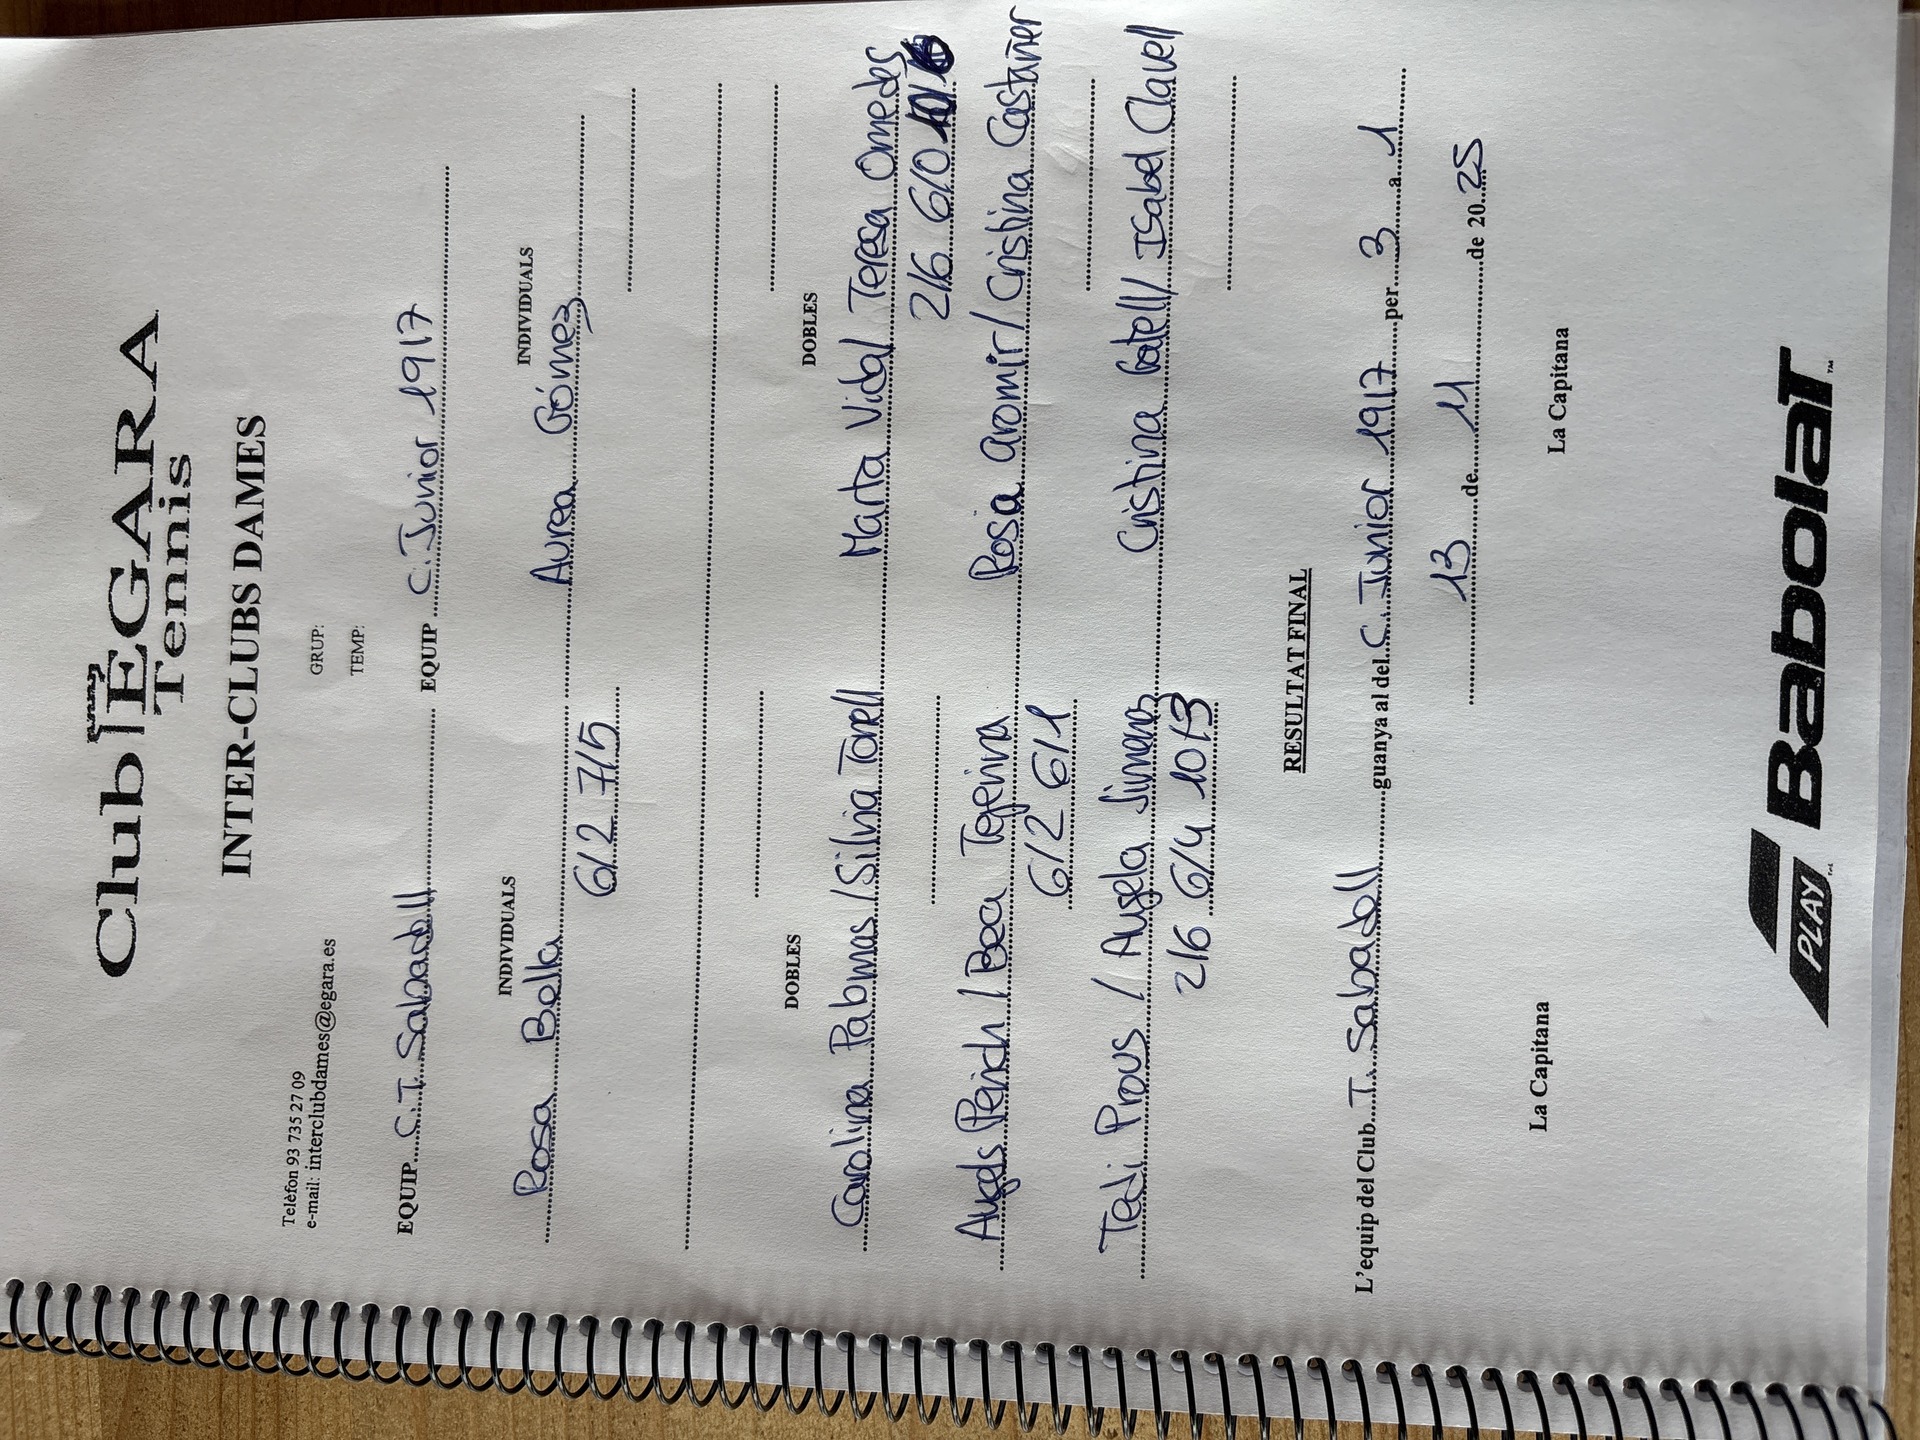 Club EGARA
Tennis
INTER-CLUBS DAMES
Telèfon 93 735 27 09
e-mail: interclubdames@egara.es
GRUP:
TEMP:
EQUIP C.T. Sabadell EQUIP C. Junior 1917
INDIVIDUALS INDIVIDUALS
Rosa Bella Aurea Gómez
6/2 7/5
DOBLES DOBLES
Carolina Palomas / Silvia Tonell Marta Vidal Teresa Omedes
2/6 6/0
Angels Perich / Bea Tejerina Rosa Aromir / Cristina Castañer
6/2 6/1
Tedi Prous / Angela Jimenez Cristina Gatell / Isabel Clavell
2/6 6/4 10/3
RESULTAT FINAL
L'equip del Club T. Sabadell guanya al del C. Junior 1917 per 3 a 1
13 de 11 de 2025
La Capitana La Capitana
PLAY Babolat